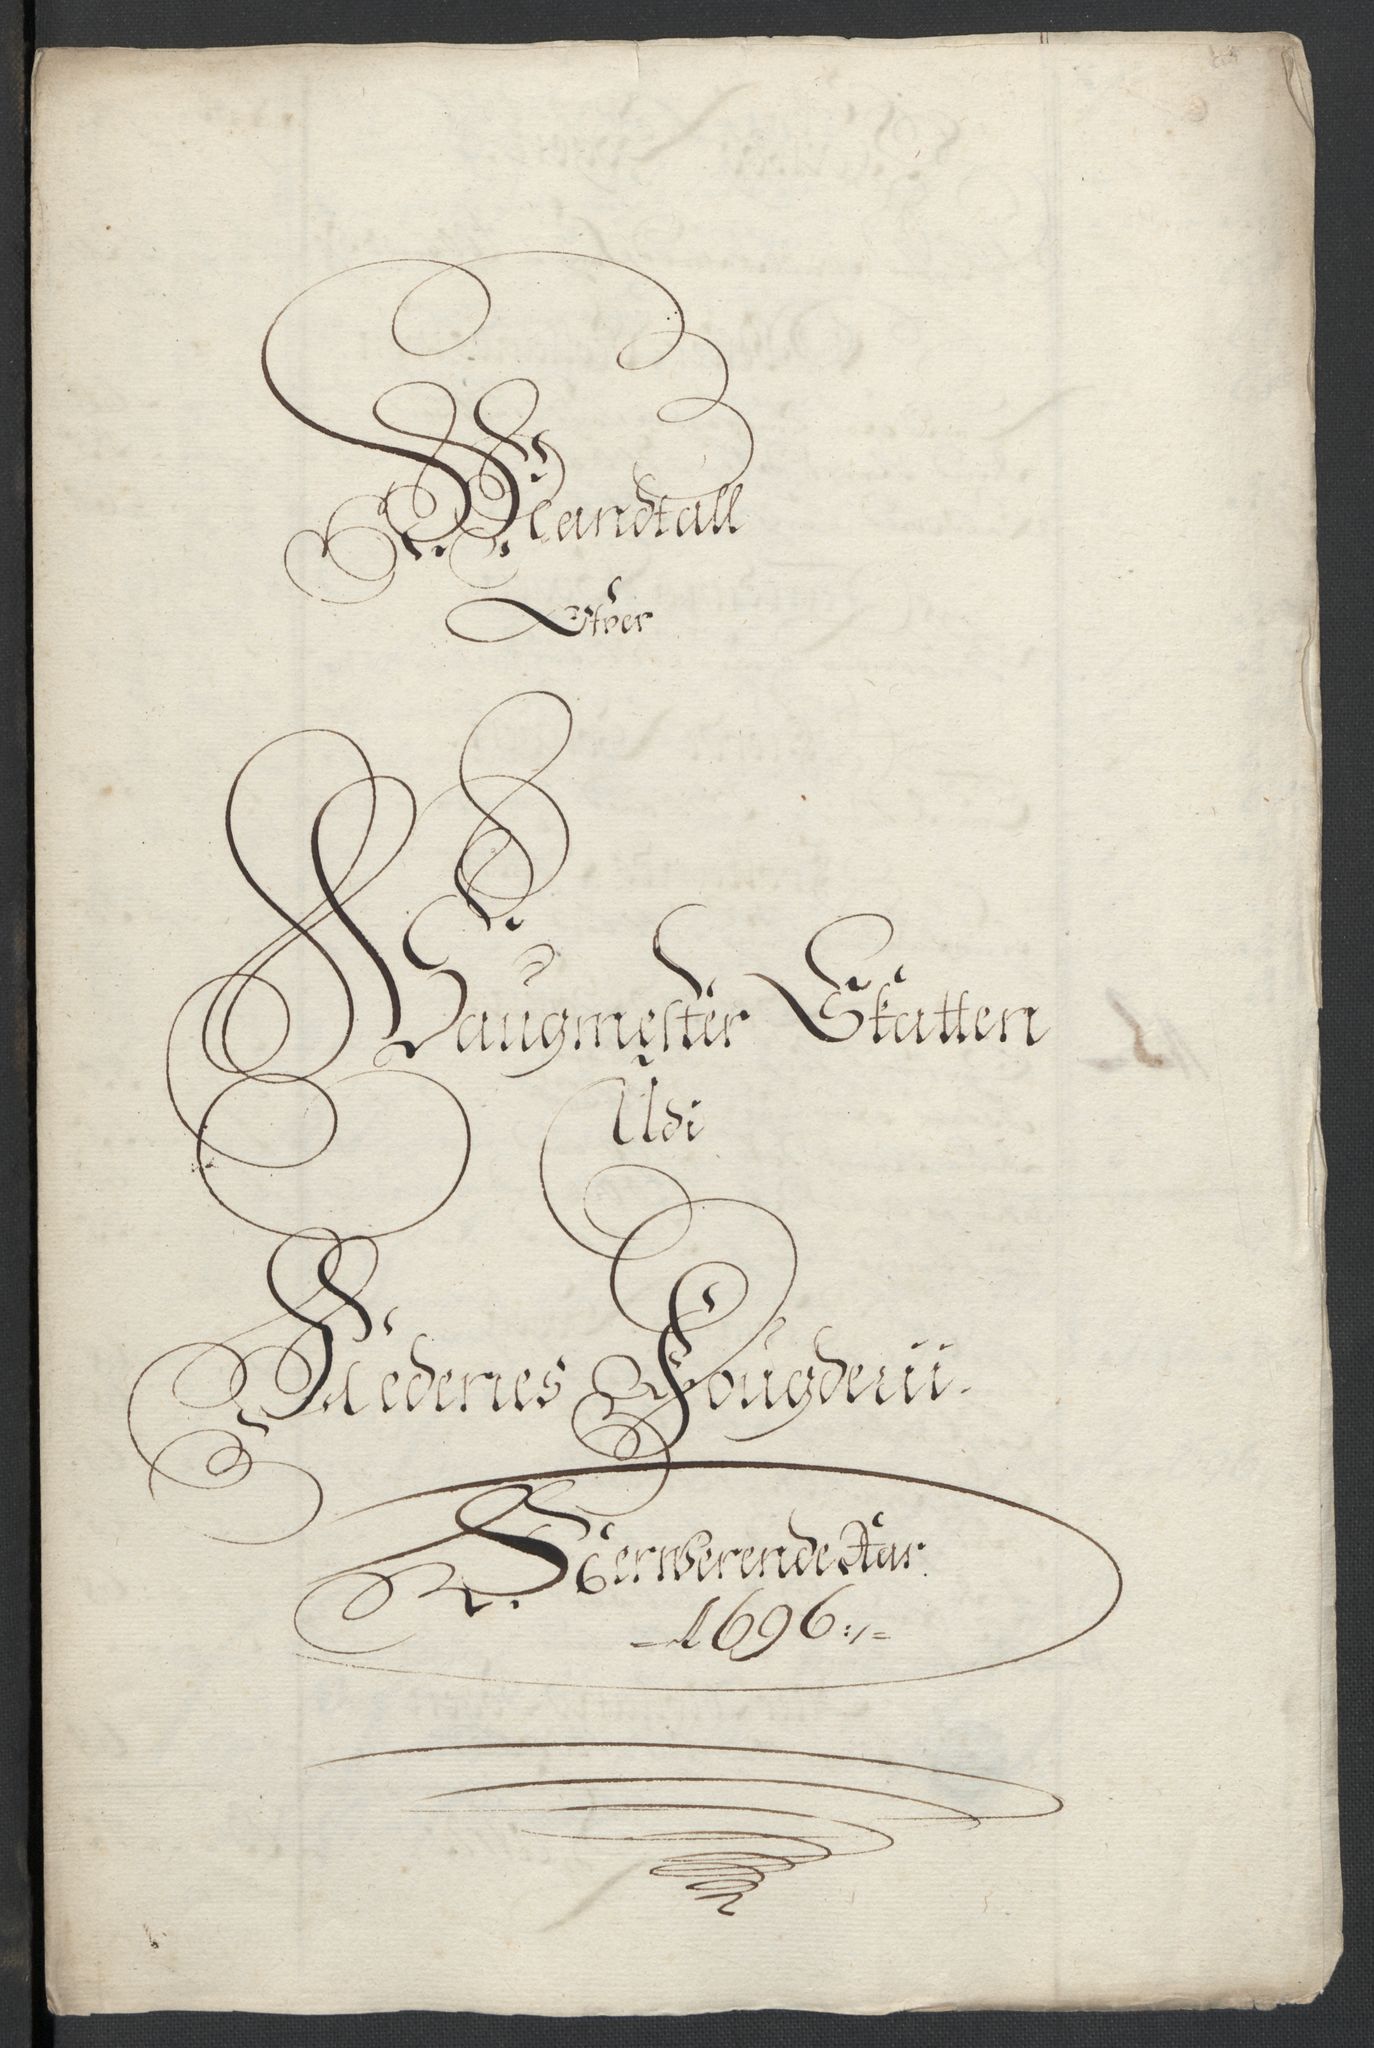 Mandtall
Ofver
Laugmester Skatten
Udi
Nedenes Fougderii.
Nerwerende Aar
1696